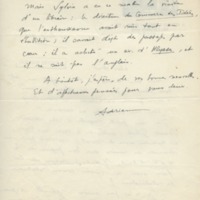 Mais Sylvia a eu ce matin la visite
d'un libraire ; le directeur du Commerce des Idées,
que l'enthousiasme avait mis tout en
; il savait déjà des passages par
cœur ; il a acheté un ex. d'Ulysses, et
il ne sait pas l'anglais.
A bientôt, j'espère, de vos bonnes nouvelles,
Et d'affectueuses pensées pour vous deux
Adrienne